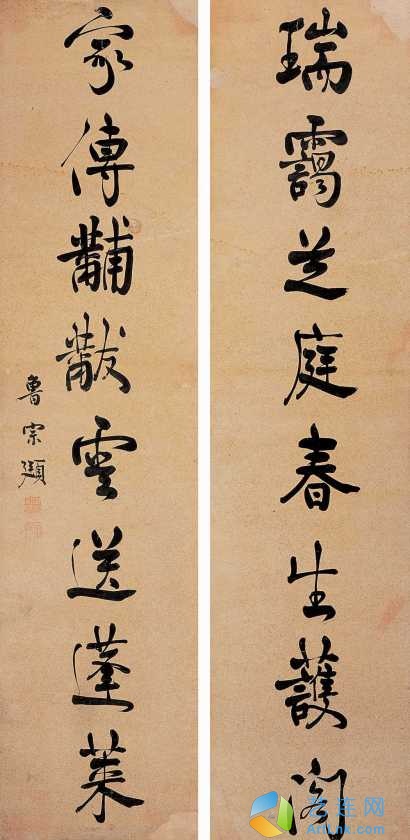 瑞靄芝庭春生蘐閣
家傳黼黻雲送蓬萊
魯宗頲
艺连网